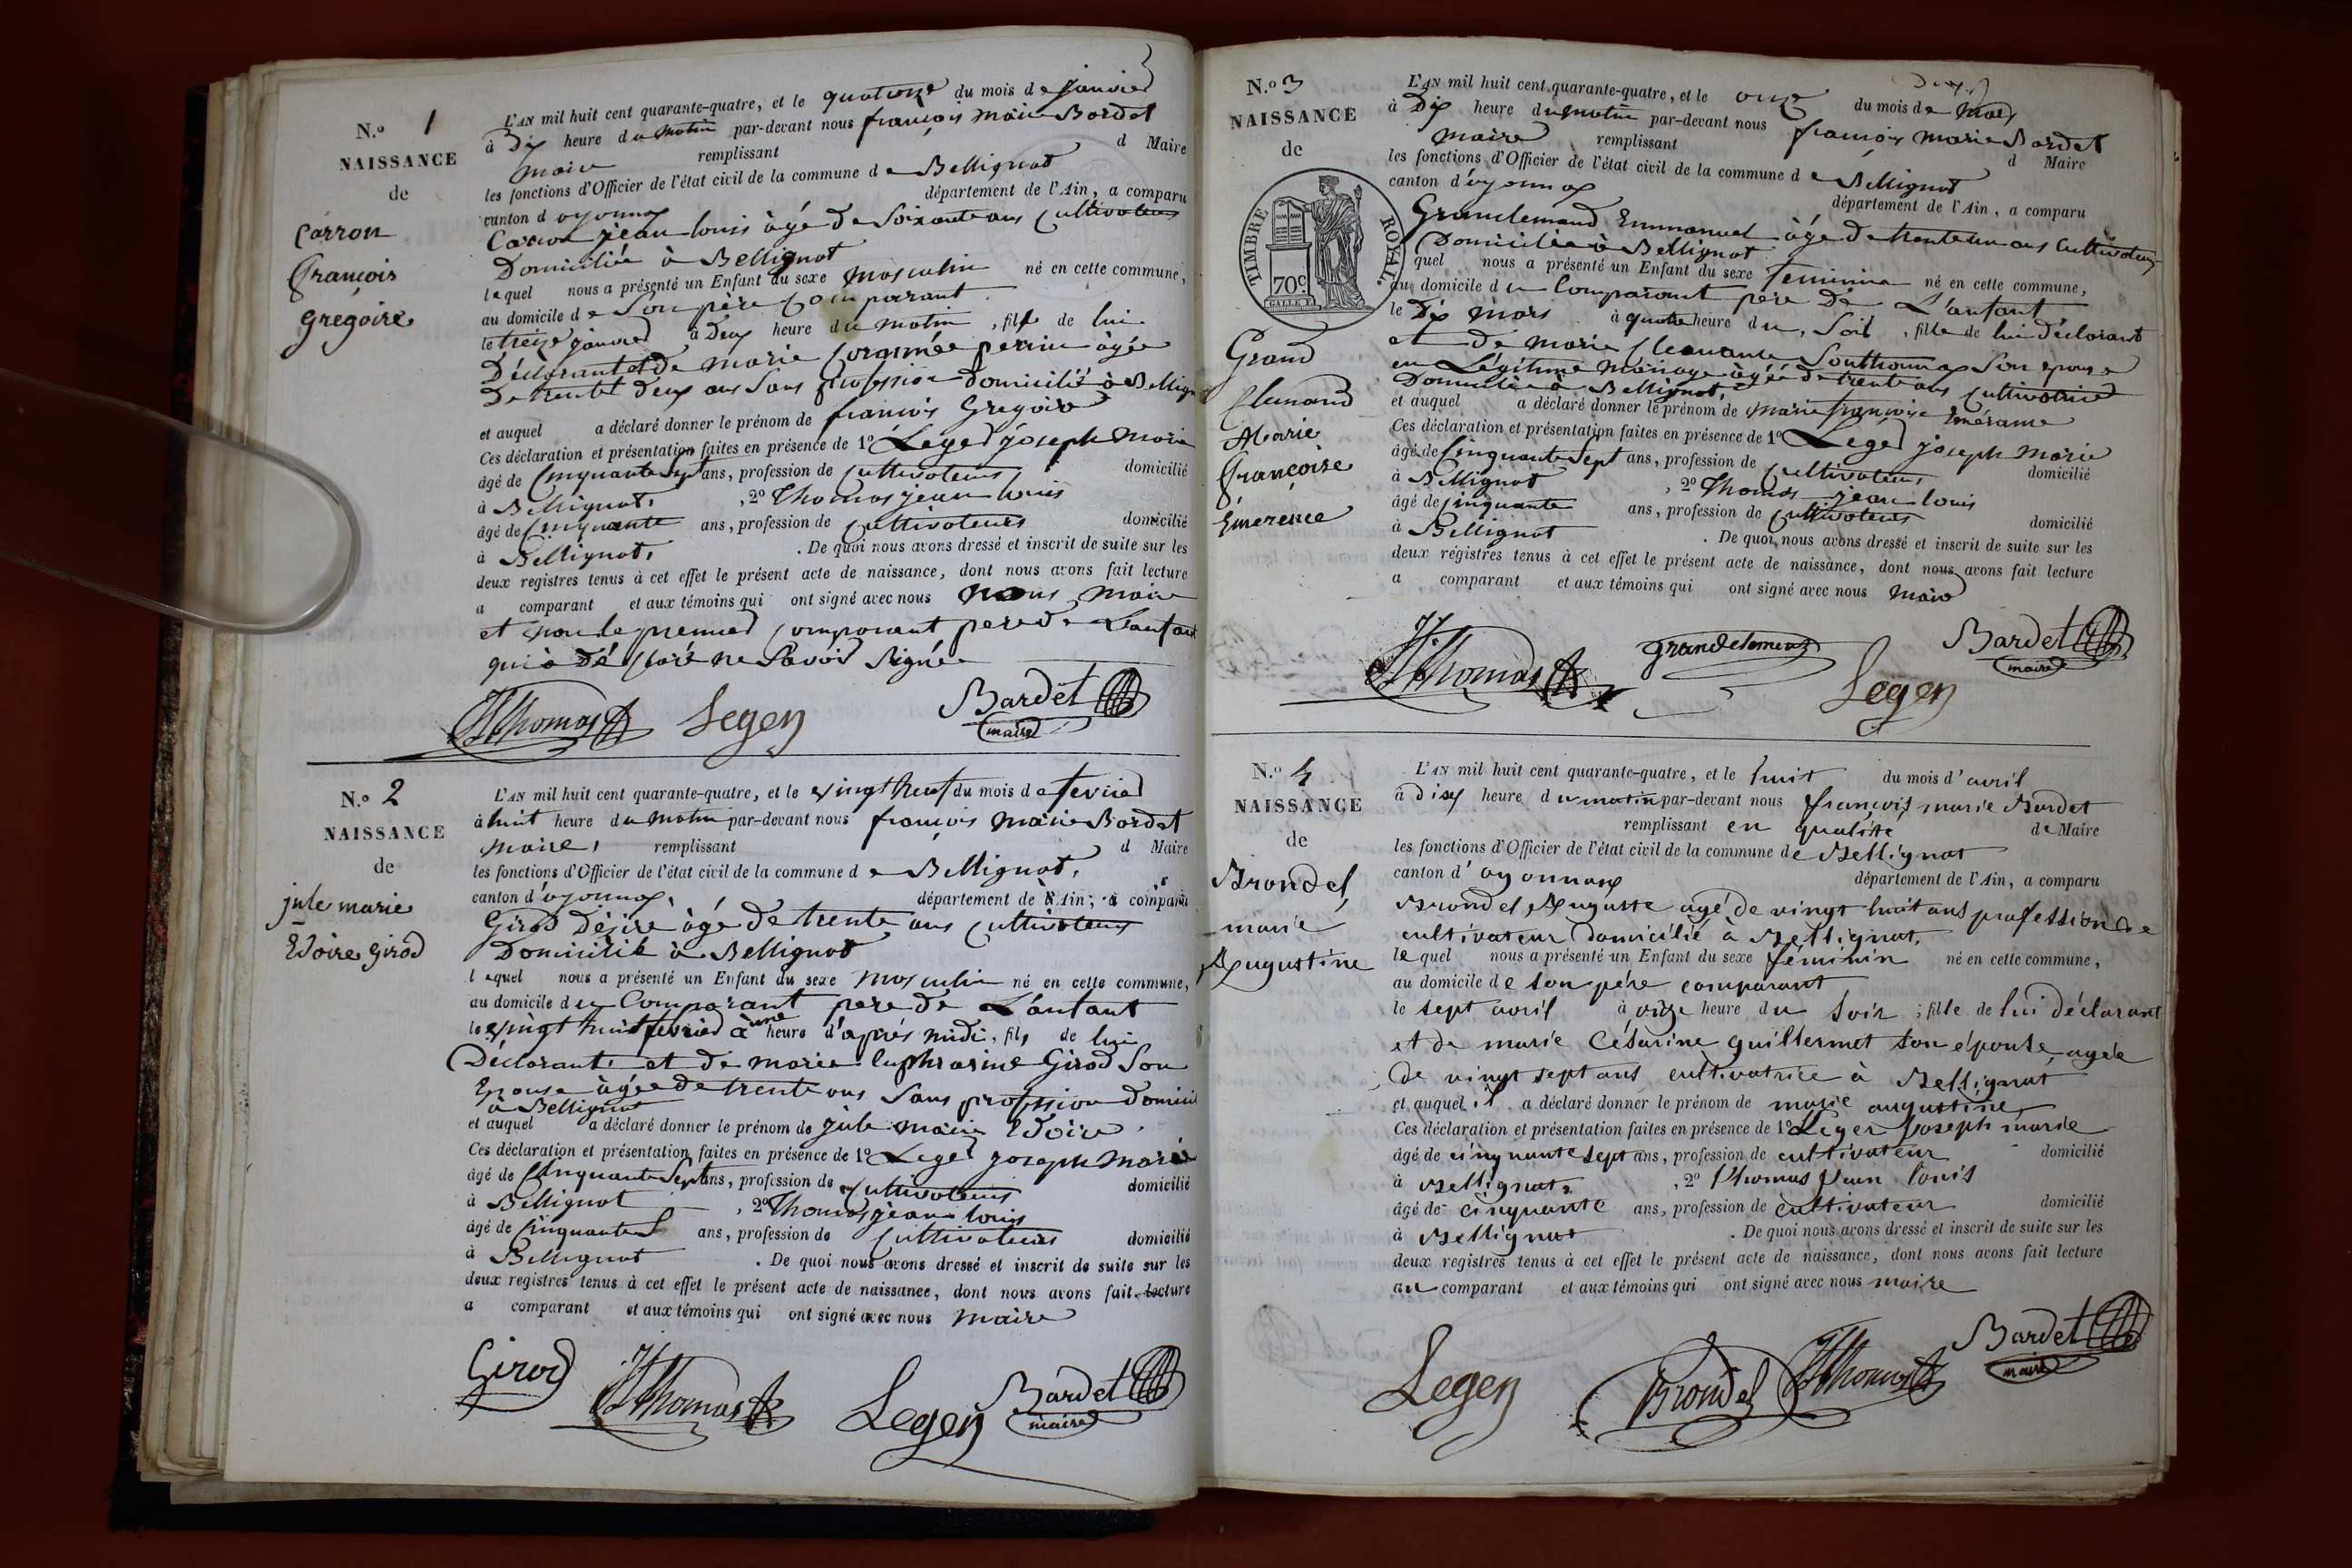 N.o 1
NAISSANCE
de
Carron
François
Gregoire
L'AN mil huit cent quarante-quatre, et le quatorze du mois de janvier
à Dix heure du matin par-devant nous françois marie Bardet
maire remplissant d Maire
les fonctions d'Officier de l'état civil de la commune de Bellignat
canton d oyonnax département de l'Ain, a comparu
Carron jean louis âgé de Soixante ans Cultivateur
Domicilié à Bellignat
lequel nous a présenté un Enfant du sexe masculin né en cette commune,
au domicile de Son père Comparant
le treize janvier à Deux heure du matin, fils de lui
Déclarant et de marie perrin âgée
De trente Deux ans Sans profession domicilié à Bellign
et auquel a déclaré donner le prénom de françois Gregoire
Ces déclaration et présentation faites en présence de 1o Leger joseph Marie
âgé de Cinquante Sept ans, profession de Cultivateur domicilié
à Bellignat, 2o Thomas jean louis
âgé de Cinquante ans, profession de Cultivateur domicilié
à Bellignat. . De quoi nous avons dressé et inscrit de suite sur les
deux registres tenus à cet effet le présent acte de naissance, dont nous avons fait lecture
a comparant et aux témoins qui ont signé avec nous nous maire
et non le premier Comparant pere de L'anfant
qui à Déclaré ne Savoir Signé
JLThomas Leger Bardet
maire
N.o 2
NAISSANCE
de
jule marie
Edoire Girod
L'AN mil huit cent quarante-quatre, et le vingt neuf du mois de fevrier
à huit heure du matin par-devant nous françois marie Bardet
maire, remplissant d Maire
les fonctions d'Officier de l'état civil de la commune de Bellignat,
canton d'oyonnax, département de l'Ain, a comparu
Girod Désire âgé de trente ans Cultivateur
Domicilié à Bellignat
lequel nous a présenté un Enfant du sexe Masculin né en cette commune,
au domicile du Comparant pere de L'anfant
le vingt huit fevrier à une heure d'après midi, fils de lui
Déclarant et de marie Euphrasine Girod Son
Epouse âgée de trente ans Sans profession domicil
à Bellignat
et auquel a déclaré donner le prénom de jule marie Edoire
Ces déclaration et présentation faites en présence de 1o Leger joseph Marie
âgé de Cinquante Sept ans, profession de Cultivateur domicilié
à Bellignat, 2o Thomas jean louis
âgé de Cinquante ans, profession de Cultivateur domicilié
à Bellignat . De quoi nous avons dressé et inscrit de suite sur les
deux registres tenus à cet effet le présent acte de naissance, dont nous avons fait lecture
a comparant et aux témoins qui ont signé avec nous maire
Girod JLThomas Leger Bardet
maire
N.o 3
NAISSANCE
de
TIMBRE ROYAL.
70c.
Grand
Clemand
Marie
Françoise
Emerence
L'AN mil huit cent quarante-quatre, et le onze du mois de mars
à Dix heure du matin par-devant nous françois marie Bardet
maire remplissant d Maire
les fonctions d'Officier de l'état civil de la commune de Bellignat
canton d'oyonnax département de l'Ain, a comparu
Grandclemand Emmanuel âgé de trente un ans Cultivateur
Domicilié à Bellignat
quel nous a présenté un Enfant du sexe feminin né en cette commune,
au domicile du Comparant père de L'anfant
le Dix mars à quatre heure du Soir, fille de lui déclarant
et de marie Son epouse
en Légitime mariage âgée de trente ans Cultivatrice
Domiciliée à Bellignat,
et auquel a déclaré donner le prénom de marie françoise
Ces déclaration et présentation faites en présence de 1o Leger joseph marie
âgé de Cinquante Sept ans, profession de Cultivateur domicilié
à Bellignat, 2o Thomas jean louis
âgé de Cinquante ans, profession de Cultivateur domicilié
à Bellignat . De quoi nous avons dressé et inscrit de suite sur les
deux régistres tenus à cet effet le présent acte de naissance, dont nous avons fait lecture
a comparant et aux témoins qui ont signé avec nous maire
JLThomas Grandclement Leger Bardet
maire
N.o 4
NAISSANCE
de
Brondel,
marie
Augustine
L'AN mil huit cent quarante-quatre, et le huit du mois d'avril
à dix heure du matin par-devant nous françois marie Bardet
remplissant en qualité de Maire
les fonctions d'Officier de l'état civil de la commune de Bellignat
canton d'oyonnax département de l'Ain, a comparu
Brondel Auguste agé de vingt huit ans profession de
cultivateur Domicilié à Bellignat,
lequel nous a présenté un Enfant du sexe féminin né en cette commune,
au domicile de son père comparant
le sept avril à onze heure du soir, fille de lui déclarant
et de marie Césarine guillermet son épouse, agée
De vingt sept ans cultivatrice à Bellignat
et auquel il a déclaré donner le prénom de marie augustine
Ces déclaration et présentation faites en présence de 1o Leger joseph marie
âgé de cinquante sept ans, profession de cultivateur domicilié
à Bellignat, , 2o Thomas Jean louis
âgé de cinquante ans, profession de cultivateur domicilié
à Bellignat . De quoi nous avons dressé et inscrit de suite sur les
deux régistres tenus à cet effet le présent acte de naissance, dont nous avons fait lecture
au comparant et aux témoins qui ont signé avec nous maire
Leger Brondel JLThomas Bardet
maire